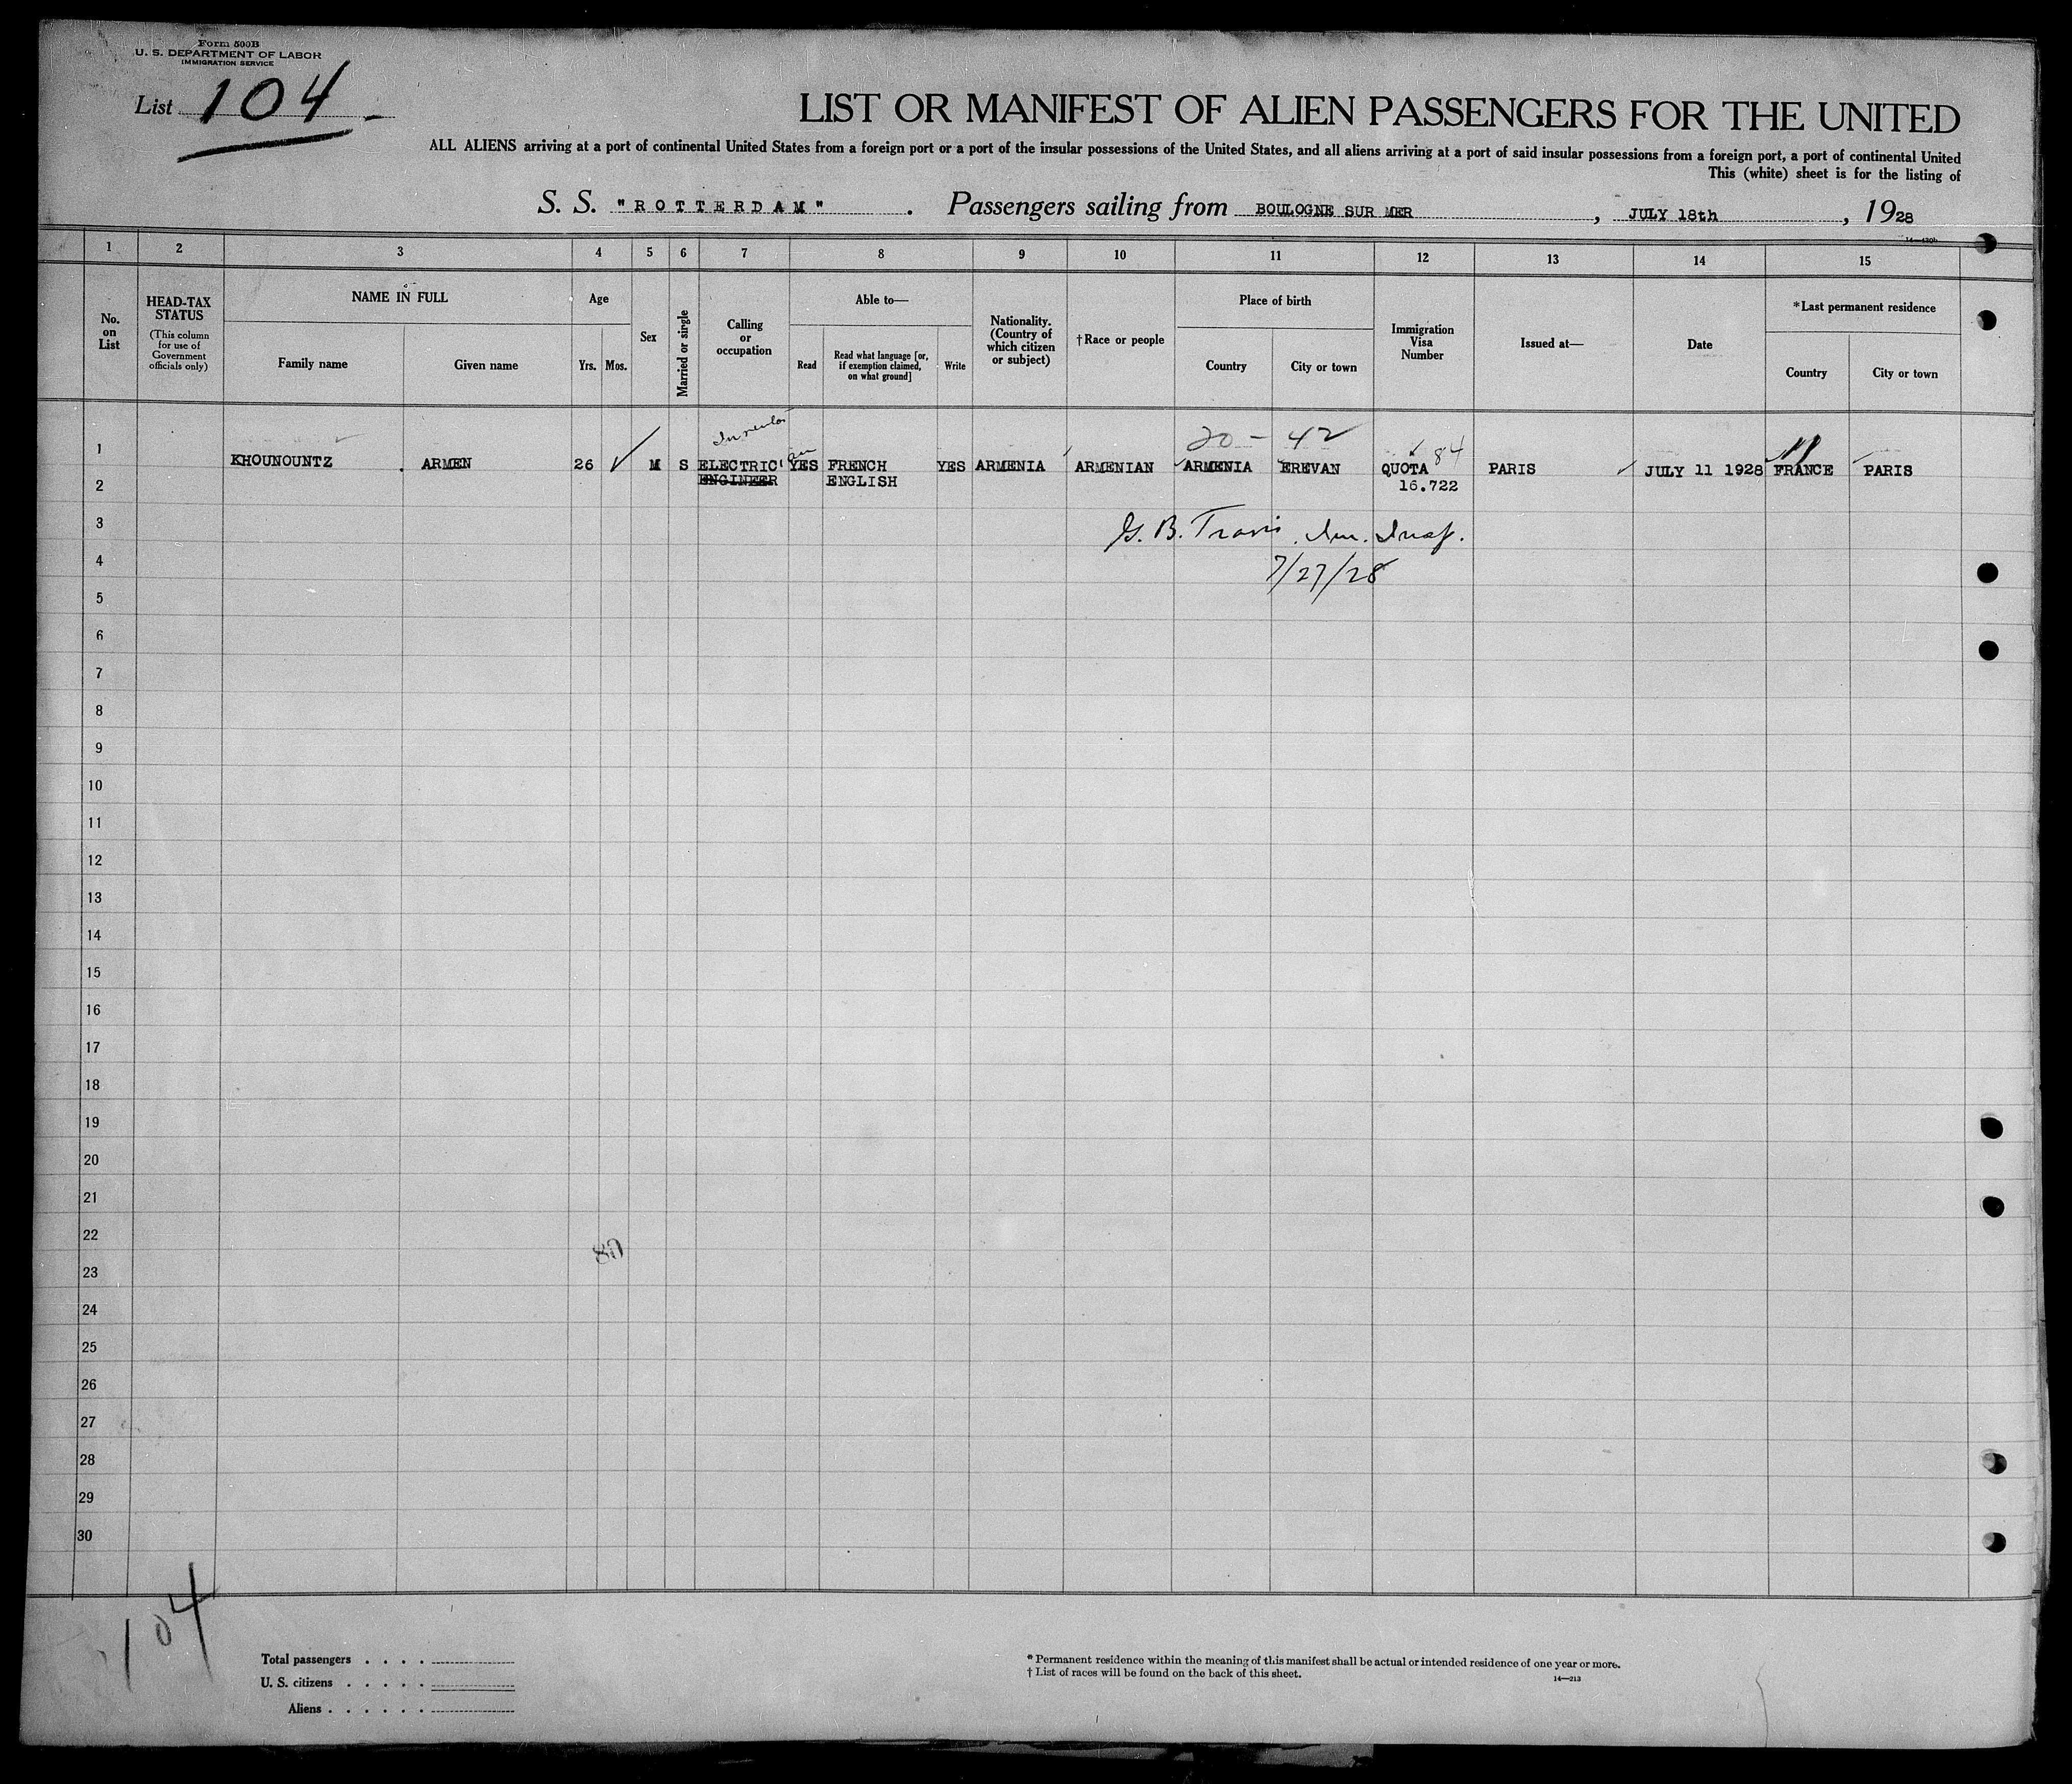 Form 500B
U. S. DEPARTMENT OF LABOR
IMMIGRATION SERVICE
List 104
LIST OR MANIFEST OF ALIEN PASSENGERS FOR THE UNITED
ALL ALIENS arriving at a port of continental United States from a foreign port or a port of the insular possessions of the United States, and all aliens arriving at a port of said insular possessions from a foreign port, a port of continental United
This (white) sheet is for the listing of
S. S. "ROTTERDAM". Passengers sailing from BOULOGNE SUR MER, JULY 18th, 1928
1 2 3 4 5 6 7 8 9 10 11 12 13 14 15
No. on List
HEAD-TAX STATUS
(This column for use of Government officials only)
NAME IN FULL
Family name
Given name
Age
Yrs. Mos.
Sex
Married or single
Calling or occupation
Able to—
Read
Read what language [or, if exemption claimed, on what ground]
Write
Nationality. (Country of which citizen or subject)
†Race or people
Place of birth
Country
City or town
Immigration Visa Number
Issued at—
Date
*Last permanent residence
Country
City or town
20 - 42
84
1 KHOUNOUNTZ ARMEN 26 M S ELECTRIC' YES FRENCH YES ARMENIA ARMENIAN ARMENIA EREVAN QUOTA PARIS JULY 11 1928 FRANCE PARIS
2 ENGINEER ENGLISH 16.722
3 G. B. Travis Im. Insp.
4 7/27/28
5
6
7
8
9
10
11
12
13
14
15
16
17
18
19
20
21
22
23
24
25
26
27
28
29
30
104
Total passengers . . . .
U. S. citizens . . . . .
Aliens . . . . . .
* Permanent residence within the meaning of this manifest shall be actual or intended residence of one year or more.
† List of races will be found on the back of this sheet.
14—213